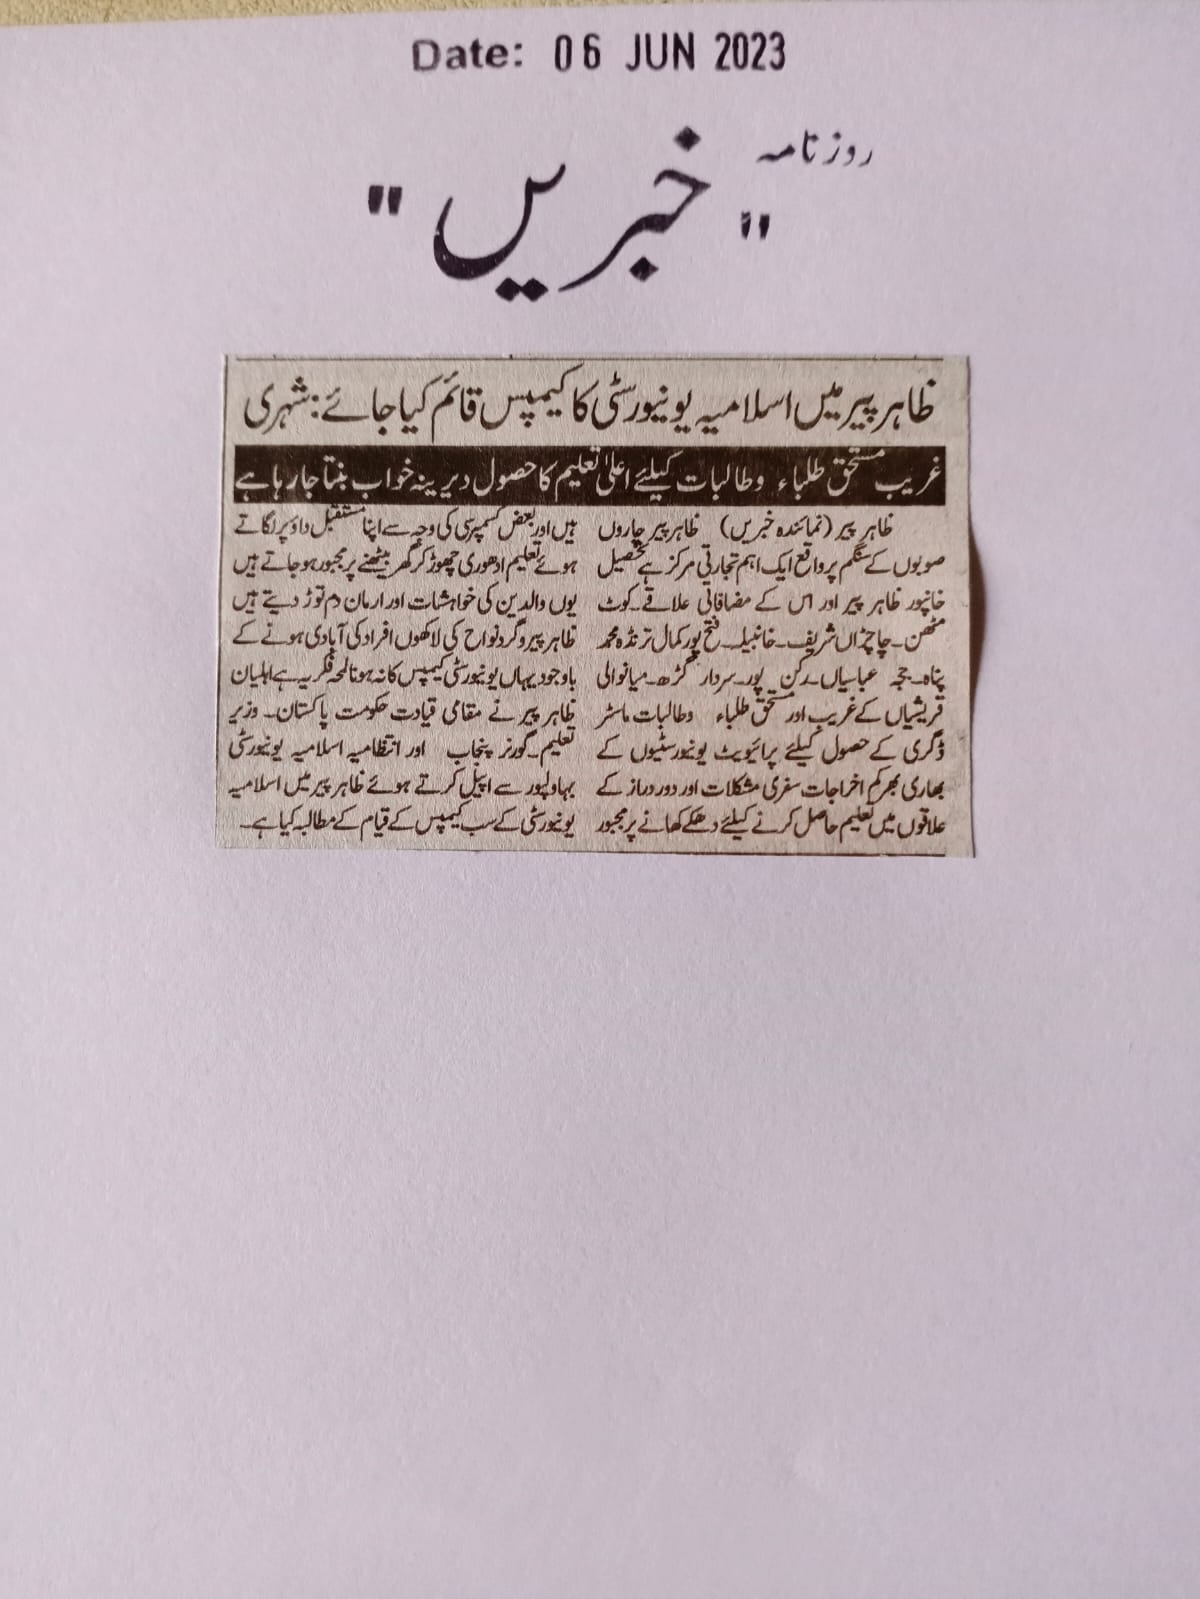 Date: 06 JUN 2023
روزنامہ
"خبریں"
ظاہر پیر میں اسلامیہ یونیورسٹی کا کیمپس قائم کیا جائے: شہری
غریب مستحق طلباء وطالبات کیلئے اعلیٰ تعلیم کا حصول دیرینہ خواب بنتا جا رہا ہے
ظاہر پیر (نمائندہ خبریں) ظاہر پیر چاروں
صوبوں کے سنگم پر واقع ایک اہم تجارتی مرکز ہے تحصیل
خانپور ظاہر پیر اور اس کے مضافاتی علاقے۔کوٹ
مٹھن۔چاچڑاں شریف۔خانبیلہ۔فتح پور کمال ترنڈہ محمد
پناہ۔ججہ عباسیاں۔رکن پور۔سردار گڑھ۔میانوالی
قریشیاں کے غریب اور مستحق طلباء وطالبات ماسٹر
ڈگری کے حصول کیلئے پرائیویٹ یونیورسٹیوں کے
بھاری بھرکم اخراجات سفری مشکلات اور دور دراز کے
علاقوں میں تعلیم حاصل کرنے کیلئے دھکے کھانے پر مجبور
ہیں اور بعض کسمپرسی کی وجہ سے اپنا مستقبل داؤ پر لگاتے
ہوئے تعلیم ادھوری چھوڑ کر گھر بیٹھنے پر مجبور ہو جاتے ہیں
یوں والدین کی خواہشات اور ارمان دم توڑ دیتے ہیں
ظاہر پیر و گردنواح کی لاکھوں افراد کی آبادی ہونے کے
باوجود یہاں یونیورسٹی کیمپس کا نہ ہونا لمحہ فکریہ ہے اہلیان
ظاہر پیر نے مقامی قیادت حکومت پاکستان۔ وزیر
تعلیم۔گورنر پنجاب اور انتظامیہ اسلامیہ یونیورسٹی
بہاولپور سے اپیل کرتے ہوئے ظاہر پیر میں اسلامیہ
یونیورسٹی کے سب کیمپس کے قیام کے مطالبہ کیا ہے۔